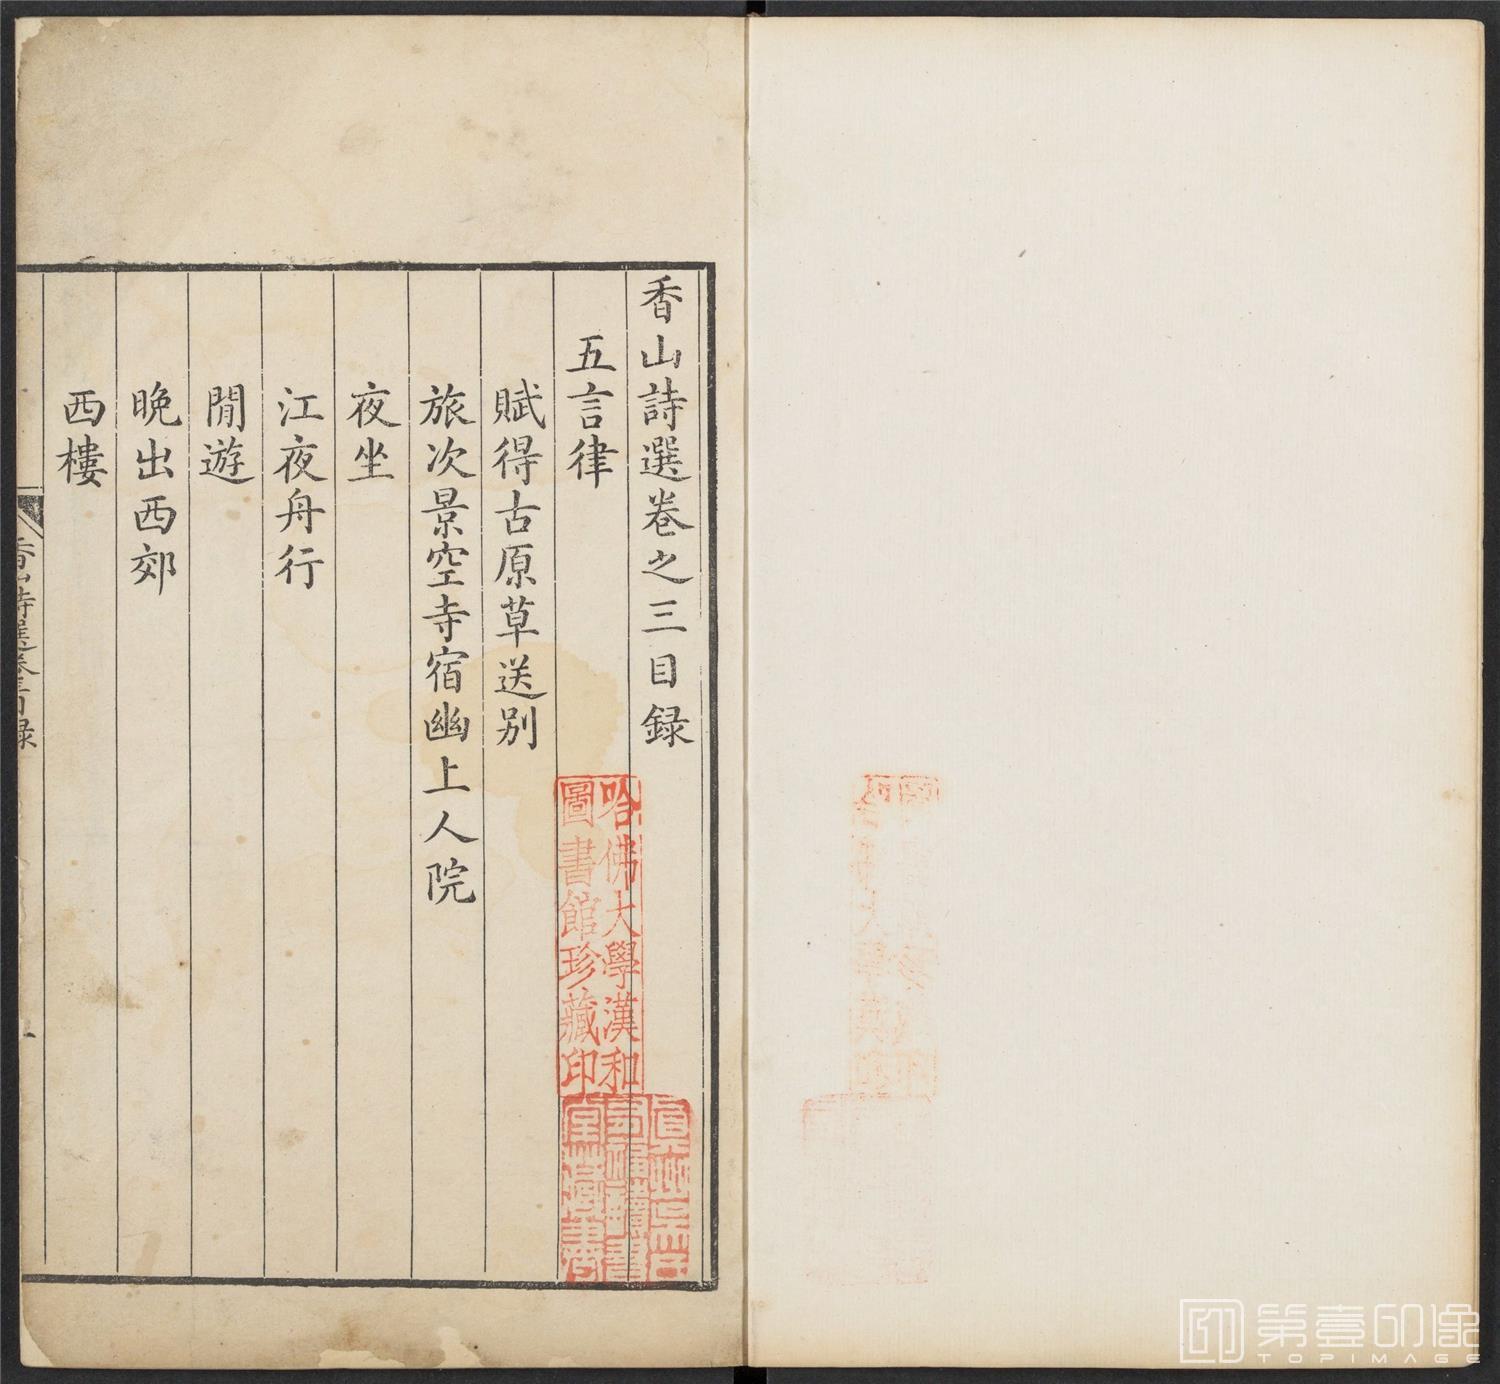 香山詩選卷之三目録
五言律
賦得古原草送别
旅次景空寺宿幽上人院
夜坐
江夜舟行
閒遊
晚出西郊
西樓
香山詩選卷三目録
哈佛大學漢和
圖書館珍藏印
第壹印像
TOPIMAGE